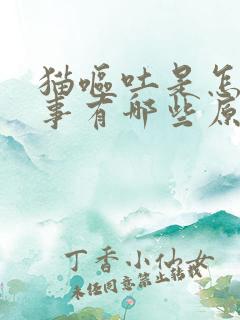 猫呕吐是怎
事有哪些原
丁香小仙女
未经同意禁止转载